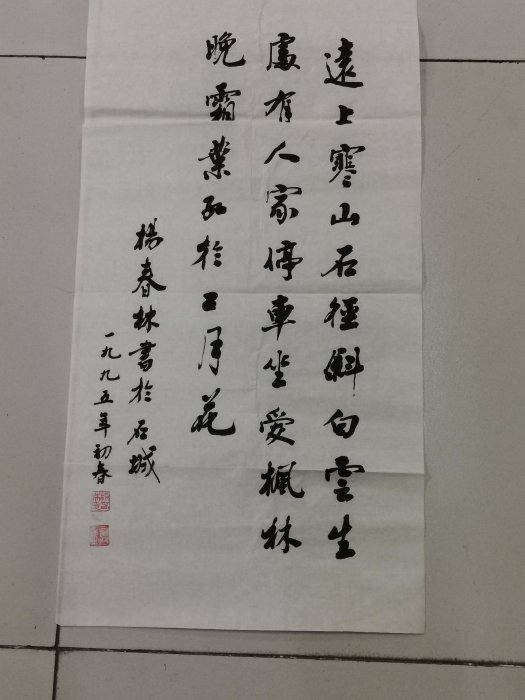 遠上寒山石徑斜白雲生
處有人家停車坐愛楓林
晚霜葉紅於二月花
楊春林書於石城
一九九五年初春